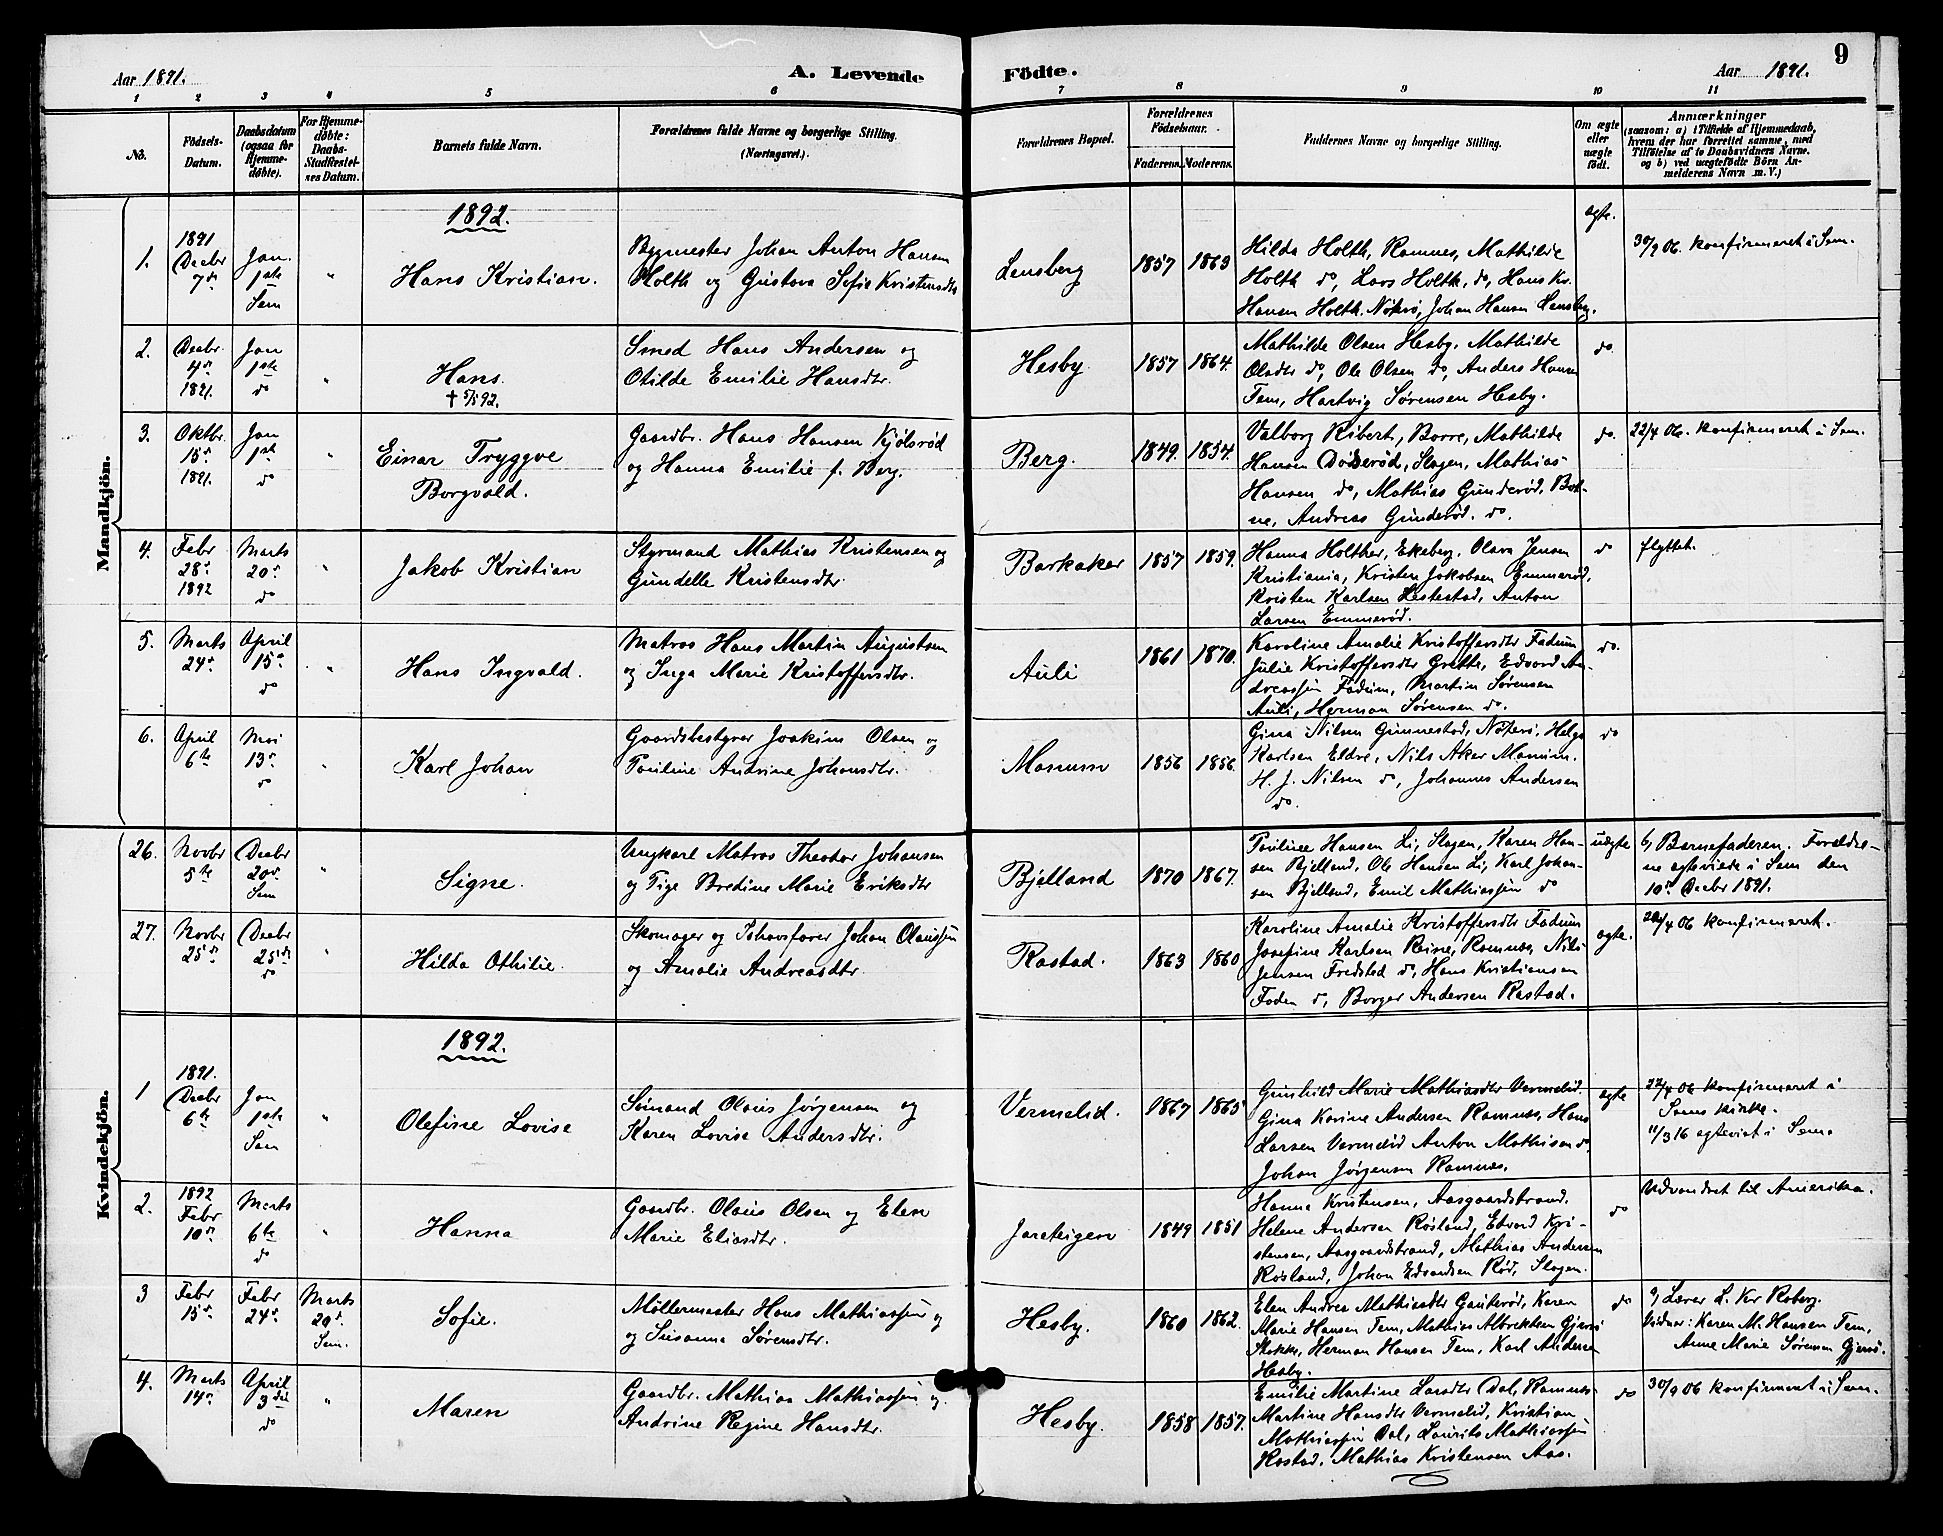 Aar 1891.
A. Levende
Födte.
Aar 1891.
9
1 2 3 4 5 6 7 8 9 10 11
No.
Födsels-
Datum.
Daabsdatum
(ogsaa for
Hjemme-
døbte).
For Hjemme-
døbte:
Daabs-
Stadfæstel-
ses Datum.
Barnets fulde Navn.
Forældrenes fulde Navne og borgerlige Stilling.
(Næringsvei.)
Forældrenes Bopæl.
Forældrenes
Födselsaar.
Faderens. Moderens.
Faddernes Navne og borgerlige Stilling.
Om ægte
eller
uægte
født.
Anmærkninger
(saasom: a) i Tilfælde af Hjemmedaab,
hvem der har forrettet samme, med
Tilføielse af to Daabsvidners Navne.
og b) ved uægtefødte Börn An-
melderens Navn m. V.)
Mandkjön.
1892.
1.
1891
Decbr
7de
Jan.
1ste
Sem
"
Hans Kristian.
Bygmester Johan Anton Hansen
Holth og Gustava Sofie Kristensdtr
Lensberg
1857 1863
Hilda Holth, Ramnes, Mathilde
Holth do, Lars Holth, do, Hans Kr.
Hansen Holth, Nøterø, Johan Hansen Lensberg.
ægte.
30/9 06. konfirmeret i Sem.
2.
Decbr.
4de
1891.
Jan
1ste
do
"
Hans.
† 5/5 92.
Smed Hans Andersen og
Otilde Emilie Hansdtr.
Hesby.
1857 1864.
Mathilde Olsen Hesby, Mathilde
Olsdtr do, Ole Olsen do, Anders Hansen
Tem, Hartvig Sørensen Hesby.
do.
3.
Oktbr.
15de
1891.
Jan
1ste
do
"
Einar Tryggve
Borgvald.
Gaardbr. Hans Hansen Kjølsrød
og Hanna Emilie f. Berg.
Berg.
1849. 1854.
Valborg Ribert, Borre, Mathilde
Hansen Døderød, Slagen, Mathias
Hansen do, Mathias Gunderød, Bot-
ne, Andreas Gunderød. do.
do.
22/4 06. konfirmeret i Sem.
4.
Febr
28de
1892
Marts
20de
do
"
Jakob Kristian
Styrmand Mathias Kristensen og
Gundelle Kristensdtr.
Barkaker
1857 1859.
Hanna Holther, Ekeberg, Olava Jensen
Kristiania, Kristen Jakobsen Emmerød,
Kristen Karlsen Lestestad, Anton
Larsen Emmerød.
do
flyttet.
5.
Marts
24de
April
15de
do
"
Hans Ingvald.
Matros Hans Martin Augustsen
og Inga Marie Kristoffersdtr.
Auli
1861 1870.
Karoline Amalie Kristoffersdtr Fadum
Julie Kristoffersdtr Grette, Edvard An-
dreassen Fadum, Martin Sørensen
Auli, Herman Sørensen do.
do.
6.
April
6te
Mai
13de
do
"
Karl Johan
Gaardsbestyrer Joakim Olsen og
Pauline Andrine Johansdtr.
Manum
1856 1856.
Gina Nilsen Gunnestad, Nøterø, Helga
Karlsen Eldre, Nils Aker Manum,
H. J. Nilsen do, Johannes Andersen
do.
do
Kvindekjön.
26.
Novbr
5te
Decbr
20de
Sem
"
Signe.
Ungkarl Matros Theodor Johansen
og Pige Bredine Marie Eriksdtr
Bjelland
1870 1867.
Pauline Hansen Li, Slagen, Karen Han-
sen Bjelland, Ole Hansen Li, Karl Johan-
sen Bjelland, Emil Mathiassen do
uægte
b, Barnefaderen. Forældre-
ne egteviede i Sem den
10de Decbr 1891.
27.
Novbr
25de
Decbr
25de
do
"
Hilda Othilie.
Skomager og Ishavsfarer Johan Olaussen
og Amalie Andreasdtr.
Rastad.
1863 1860
Karoline Amalie Kristoffersdtr Fadum
Josefine Karlsen Reine, Ramnes, Nils
Jensen Fredstad do, Hans Kristiansen
Foden do, Borger Andersen Rastad.
ægte.
22/4 06 konfirmeret.
1892.
1
1891.
Decbr
6te
Jan
1ste
Sem
"
Olefine Lovise
Sømand Olaus Jørgensen og
Karen Lovise Andersdtr.
Vermelid.
1867 1865
Gunhild Marie Mathiasdtr Vermelid,
Gina Karine Andersen Ramnes, Hans
Larsen Vermelid Anton Mathisen do,
Johan Jørgensen Ramnes.
ægte
22/4 06 konfirmeret i
Sems kirke.
11/3 16 egteviet i Sem.
2.
1892
Febr
10de
Marts
6te
do
"
Hanna
Gaardbr. Olaus Olsen og Elen
Marie Eliasdtr.
Jareteigen
1849 1851
Hanna Kristensen, Aasgaardstrand.
Helene Andersen Røsland, Edvard Kri-
stensen, Aasgaardstrand, Mathias Andersen
Røsland, Johan Edvardsen Rød, Slagen.
do
Udvandret til Amerika.
3
Febr
15de
Febr
24de
Marts
20de
Sem.
Sofie.
Møllermester Hans Mathiassen og
og Susanna Sørensdtr.
Hesby.
1860 1862.
Elen Andrea Mathiasdtr Gauterød, Karen
Marie Hansen Tem, Mathias Albrektsen Gjersø
Stokke, Herman Hansen Tem, Karl Andersen
Hesby.
do
a/ Lærer L. Kr Roberg.
Vidner: Karen M. Hansen Tem,
Anne Marie Sørensen Gjersø.
4.
Marts
14de
April
3die
do
"
Maren
Gaardbr. Mathias Mathiassen og
Andrine Regine Hansdtr.
Hesby.
1858 1857.
Emilie Martine Larsdtr Dal, Ramnes
Martine Hansdtr Vermelid, Kristian
Mathiassen Dal, Laurits Mathiassen
Rastad, Mathias Kristensen Aas.
do
30/9 06 konfirmert i Sem.